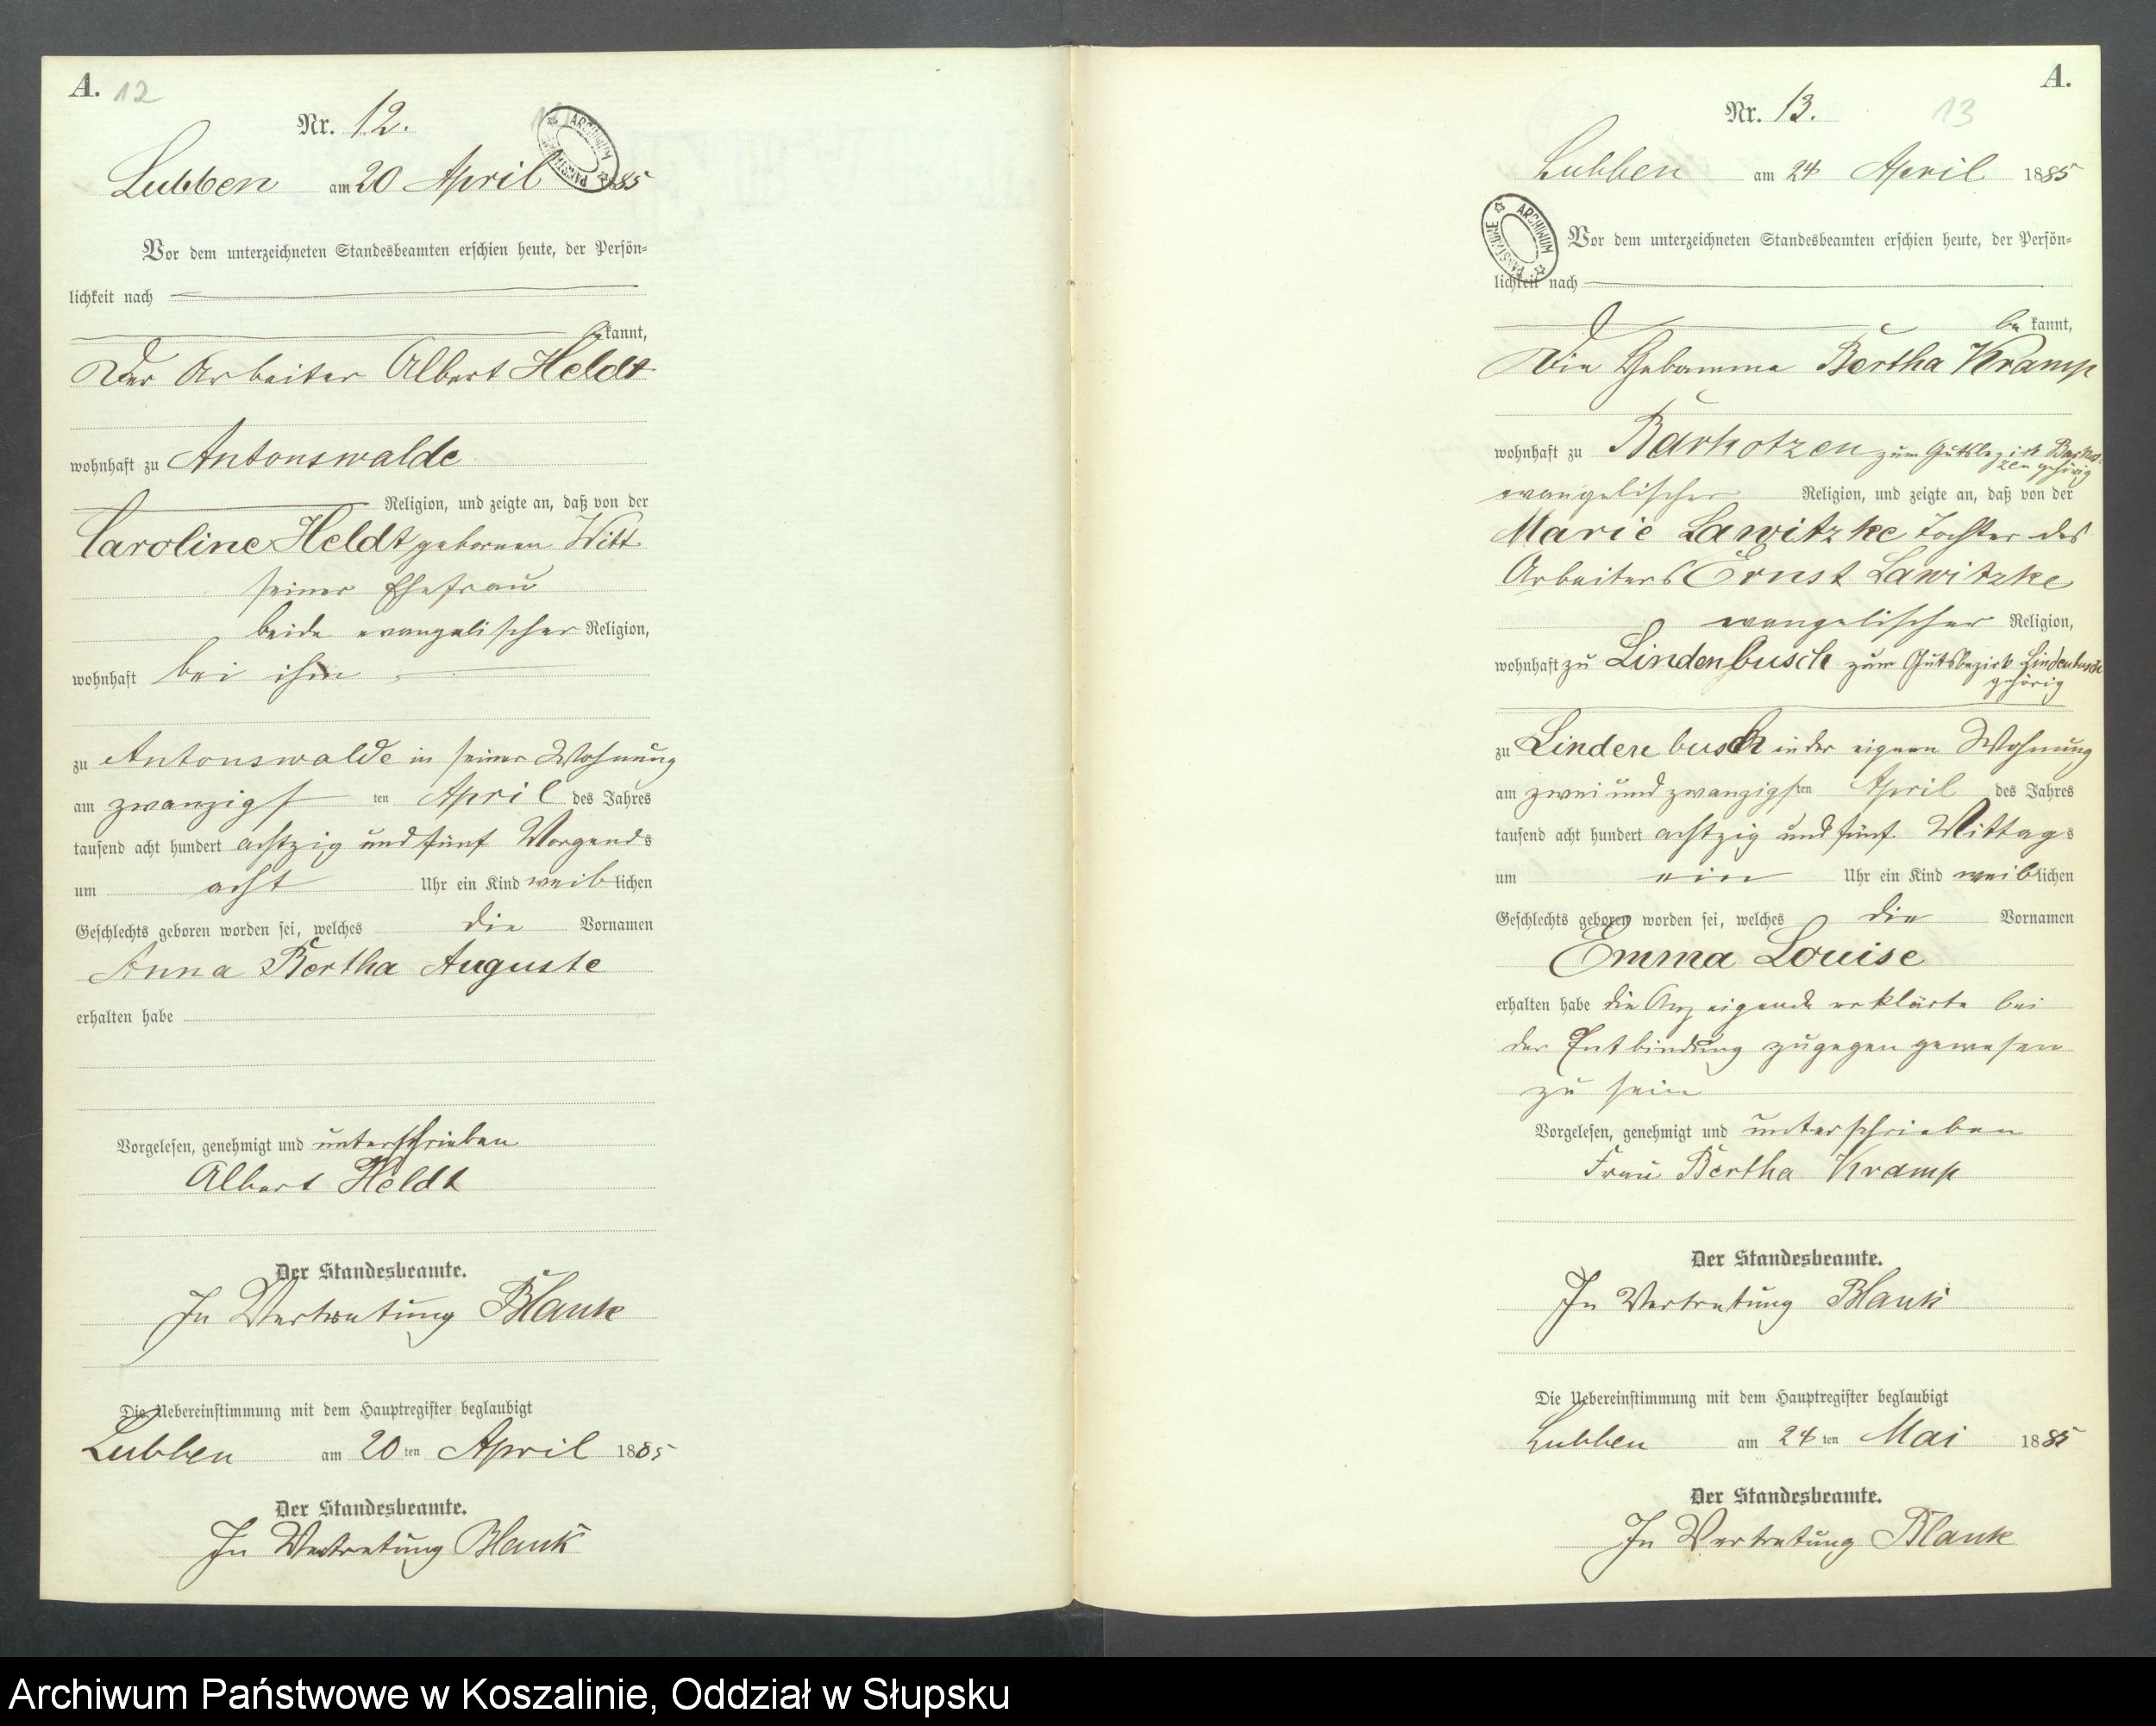 A. 12
Nr. 12.
Lubben am 20 April 1885
ARCHIWUM PAŃSTWOWE
Vor dem unterzeichneten Standesbeamten erschien heute, der Persön-
lichkeit nach
be kannt,
Der Arbeiter Albert Heldt
wohnhaft zu Antonswalde
Religion, und zeigte an, daß von der
Caroline Heldt gebornen Witt
seiner Ehefrau
beide evangelischer Religion,
wohnhaft bei ihm
zu Antonswalde in seiner Wohnung
am zwanzigsten April des Jahres
tausend acht hundert achtzig und fünf Morgends
um acht Uhr ein Kind weiblichen
Geschlechts geboren worden sei, welches die Vornamen
Anna Bertha Auguste
erhalten habe
Vorgelesen, genehmigt und unterschrieben
Albert Heldt
Der Standesbeamte.
In Vertretung Blank
Die Uebereinstimmung mit dem Hauptregister beglaubigt
Lubben am 20ten April 1885
Der Standesbeamte.
In Vertretung Blank
A.
Nr. 13. 13
Lubben am 24 April 1885
ARCHIWUM PAŃSTWOWE
Vor dem unterzeichneten Standesbeamten erschien heute, der Persön-
lichkeit nach
be kannt,
Die Hebamme Bertha Kramp
wohnhaft zu Barkotzen zum Gutsbezirk Barkot-
zen gehörig
evangelischer Religion, und zeigte an, daß von der
Marie Lawitzke Tochter des
Arbeiters Ernst Lawitzke
evangelischer Religion,
wohnhaft zu Lindenbusch zum Gutsbezirk Lindenbusch
gehörig
zu Lindenbusch in der eignen Wohnung
am zwei und zwanzigsten April des Jahres
tausend acht hundert achtzig und fünf Mittags
um ein Uhr ein Kind weiblichen
Geschlechts geboren worden sei, welches die Vornamen
Emma Louise
erhalten habe die Anzeigende erklärte bei
der Entbindung zugegen gewesen
zu sein
Vorgelesen, genehmigt und unterschrieben
Frau Bertha Kramp
Der Standesbeamte.
In Vertretung Blank
Die Uebereinstimmung mit dem Hauptregister beglaubigt
Lubben am 24ten Mai 1885
Der Standesbeamte.
In Vertretung Blank
Archiwum Państwowe w Koszalinie, Oddział w Słupsku